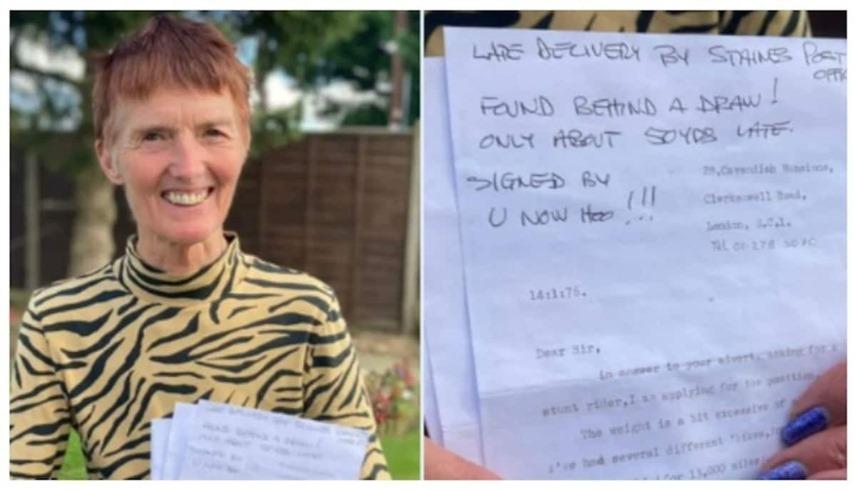 LATE DELIVERY BY STAINES POST
OFFI
FOUND BEHIND A DRAW!
ONLY ABOUT 50YRS LATE.
SIGNED BY
U NOW HOO!!!
28, Cavendish Mansions,
Clerkenwell Road,
London, E.C.1.
Tel 01 278 3070
14:1:76.
Dear Sir,
in answer to your advert, asking for a
stunt rider, I am applying for the position,
The weight is a bit excessive of
i've had several different 'bikes,
for 13,000 miles